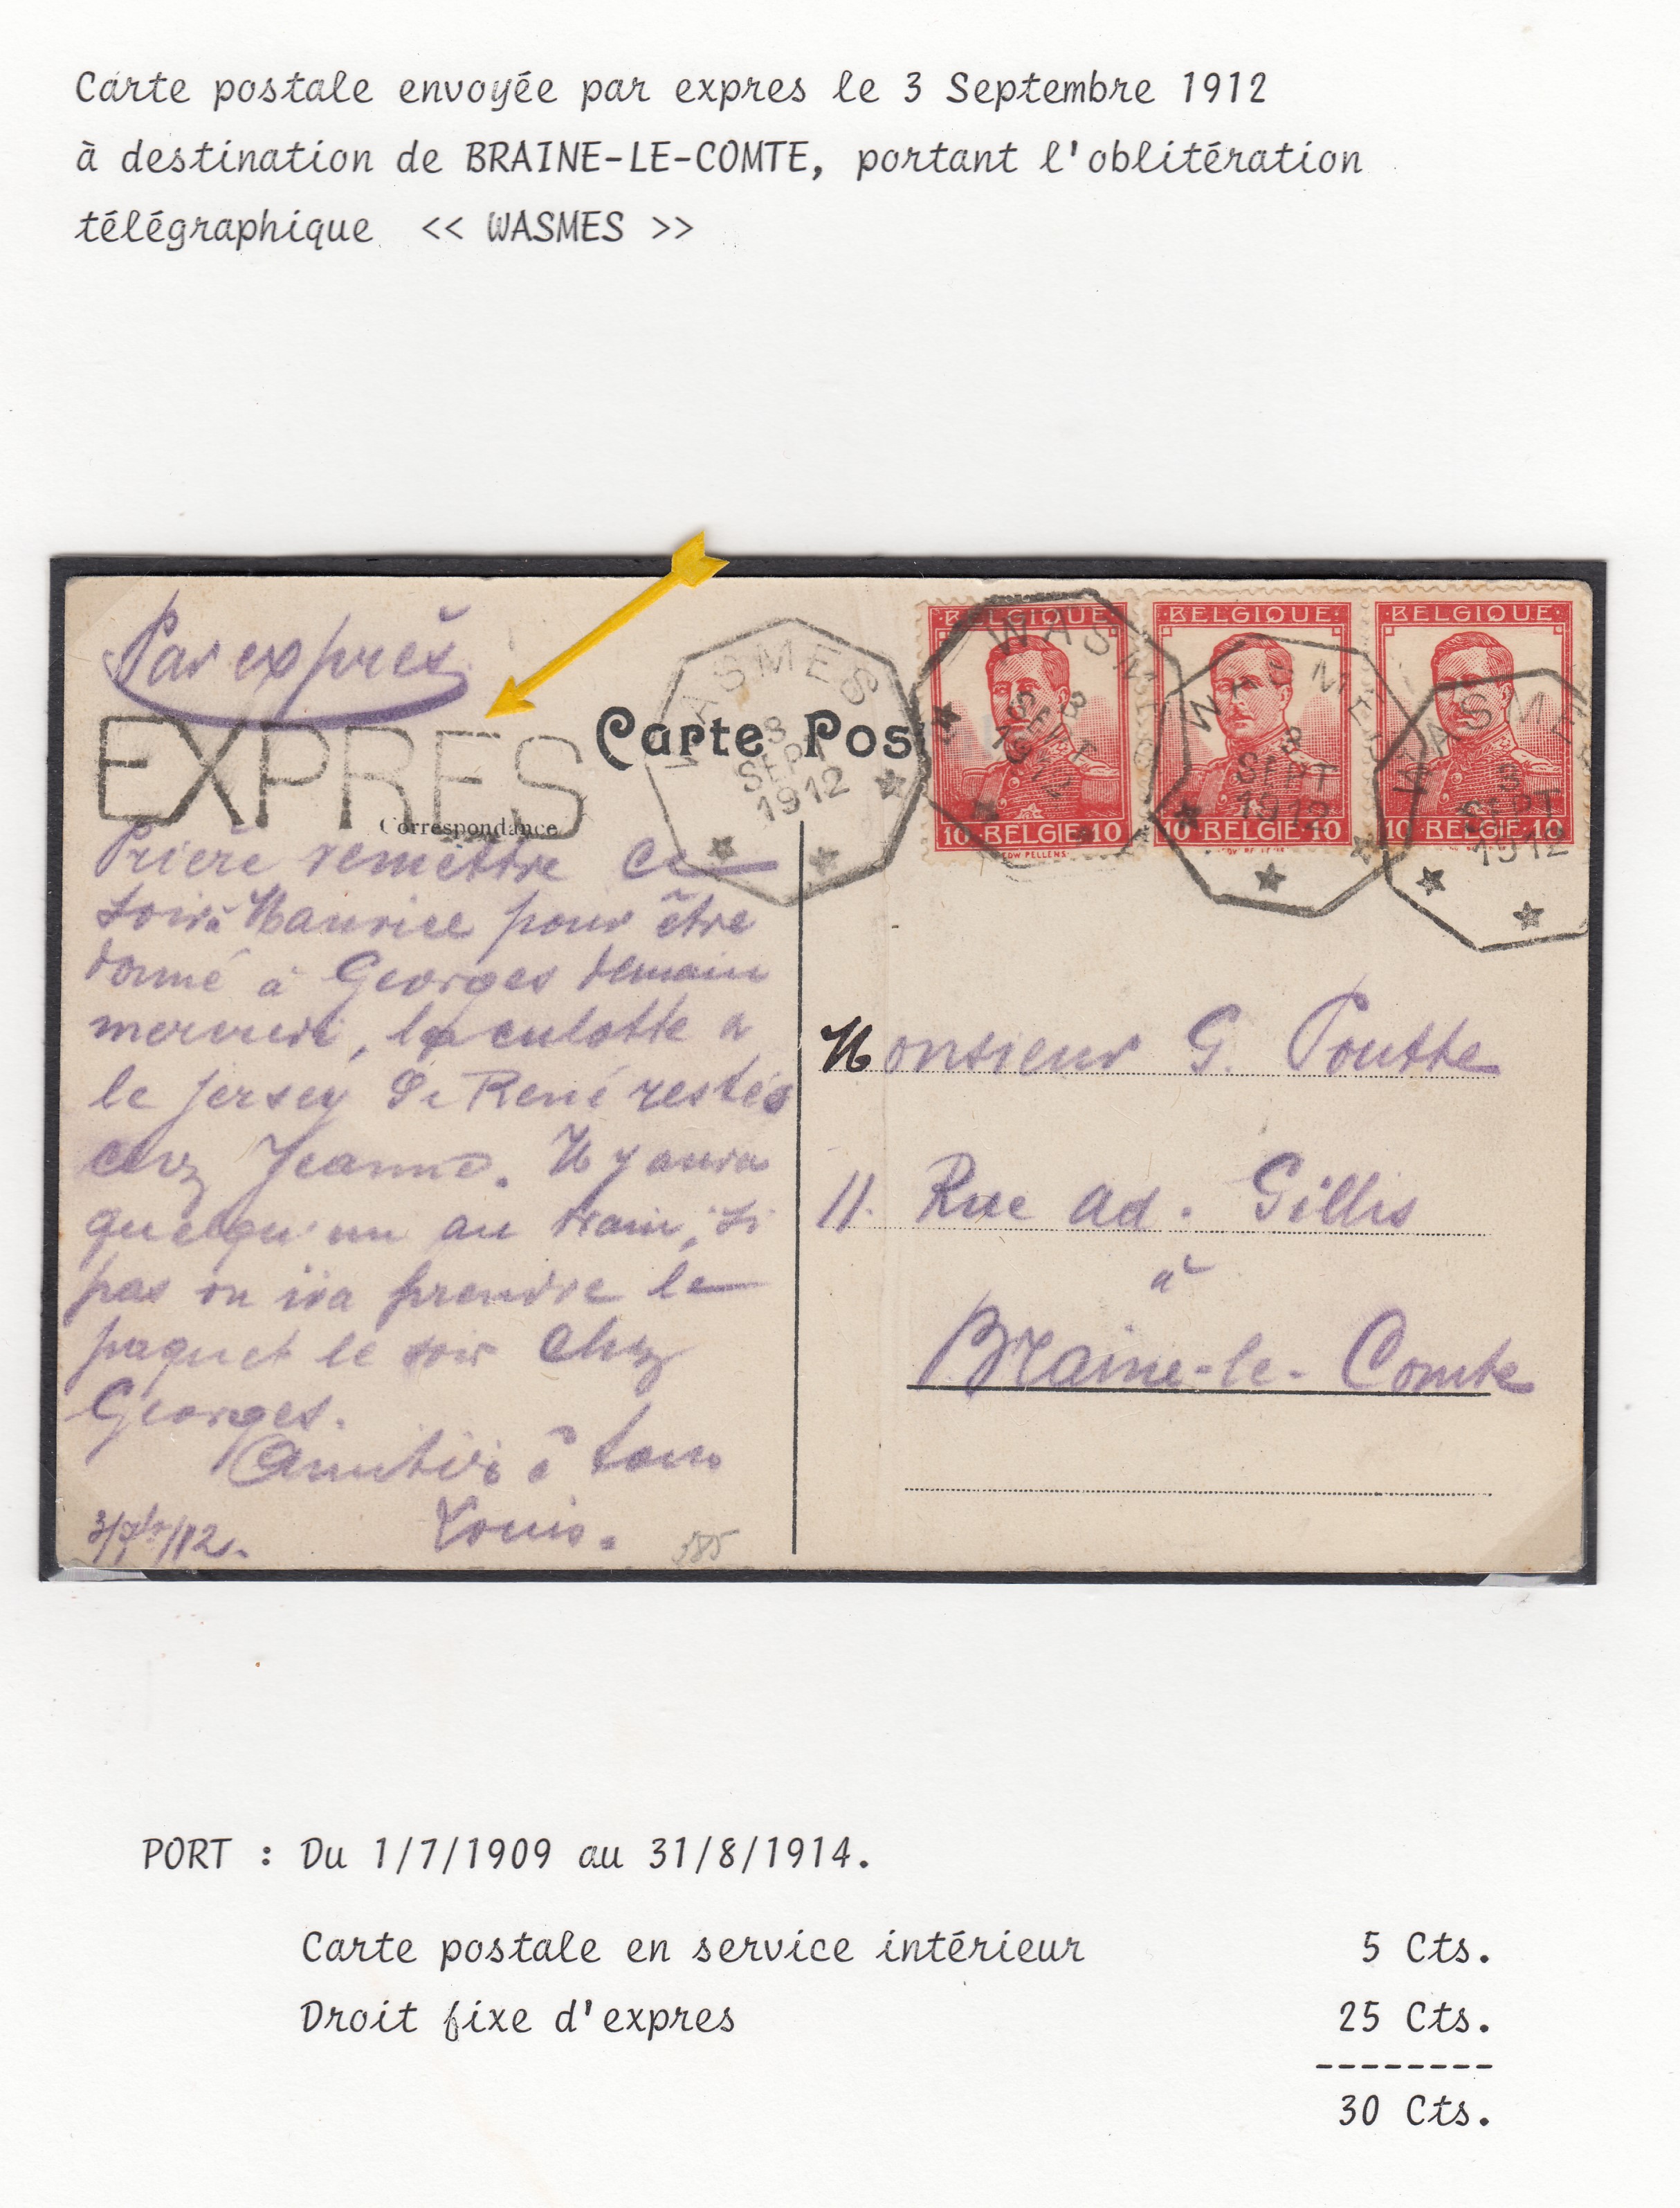 Carte postale envoyée par expres le 3 Septembre 1912
à destination de BRAINE-LE-COMTE, portant l'oblitération
télégraphique << WASMES >>
Par exprès
EXPRES
Carte Pos
Correspondance
WASMES
3
SEPT
1912
BELGIQUE
10 BELGIE 10
EDW PELLENS
WASM
3
SEPT
1912
BELGIQUE
10 BELGIE 10
WASME
3
SEPT
1912
BELGIQUE
10 BELGIE 10
WASMES
3
SEPT
1912
Prière remettre ce
soir à Maurice pour être
donné à Georges demain
mercredi, la culotte &
le jersey de René restés
chez Jeanne. Il y aura
quelqu'un au train, si
pas on ira prendre le
paquet le soir chez
Georges.
Amitiés à tous
Louis.
3/7bre/12.
585
Monsieur G. Poutte
11. Rue Ad. Gillis
à
Braine-le-Comte
PORT : Du 1/7/1909 au 31/8/1914.
Carte postale en service intérieur 5 Cts.
Droit fixe d'expres 25 Cts.
--------
30 Cts.